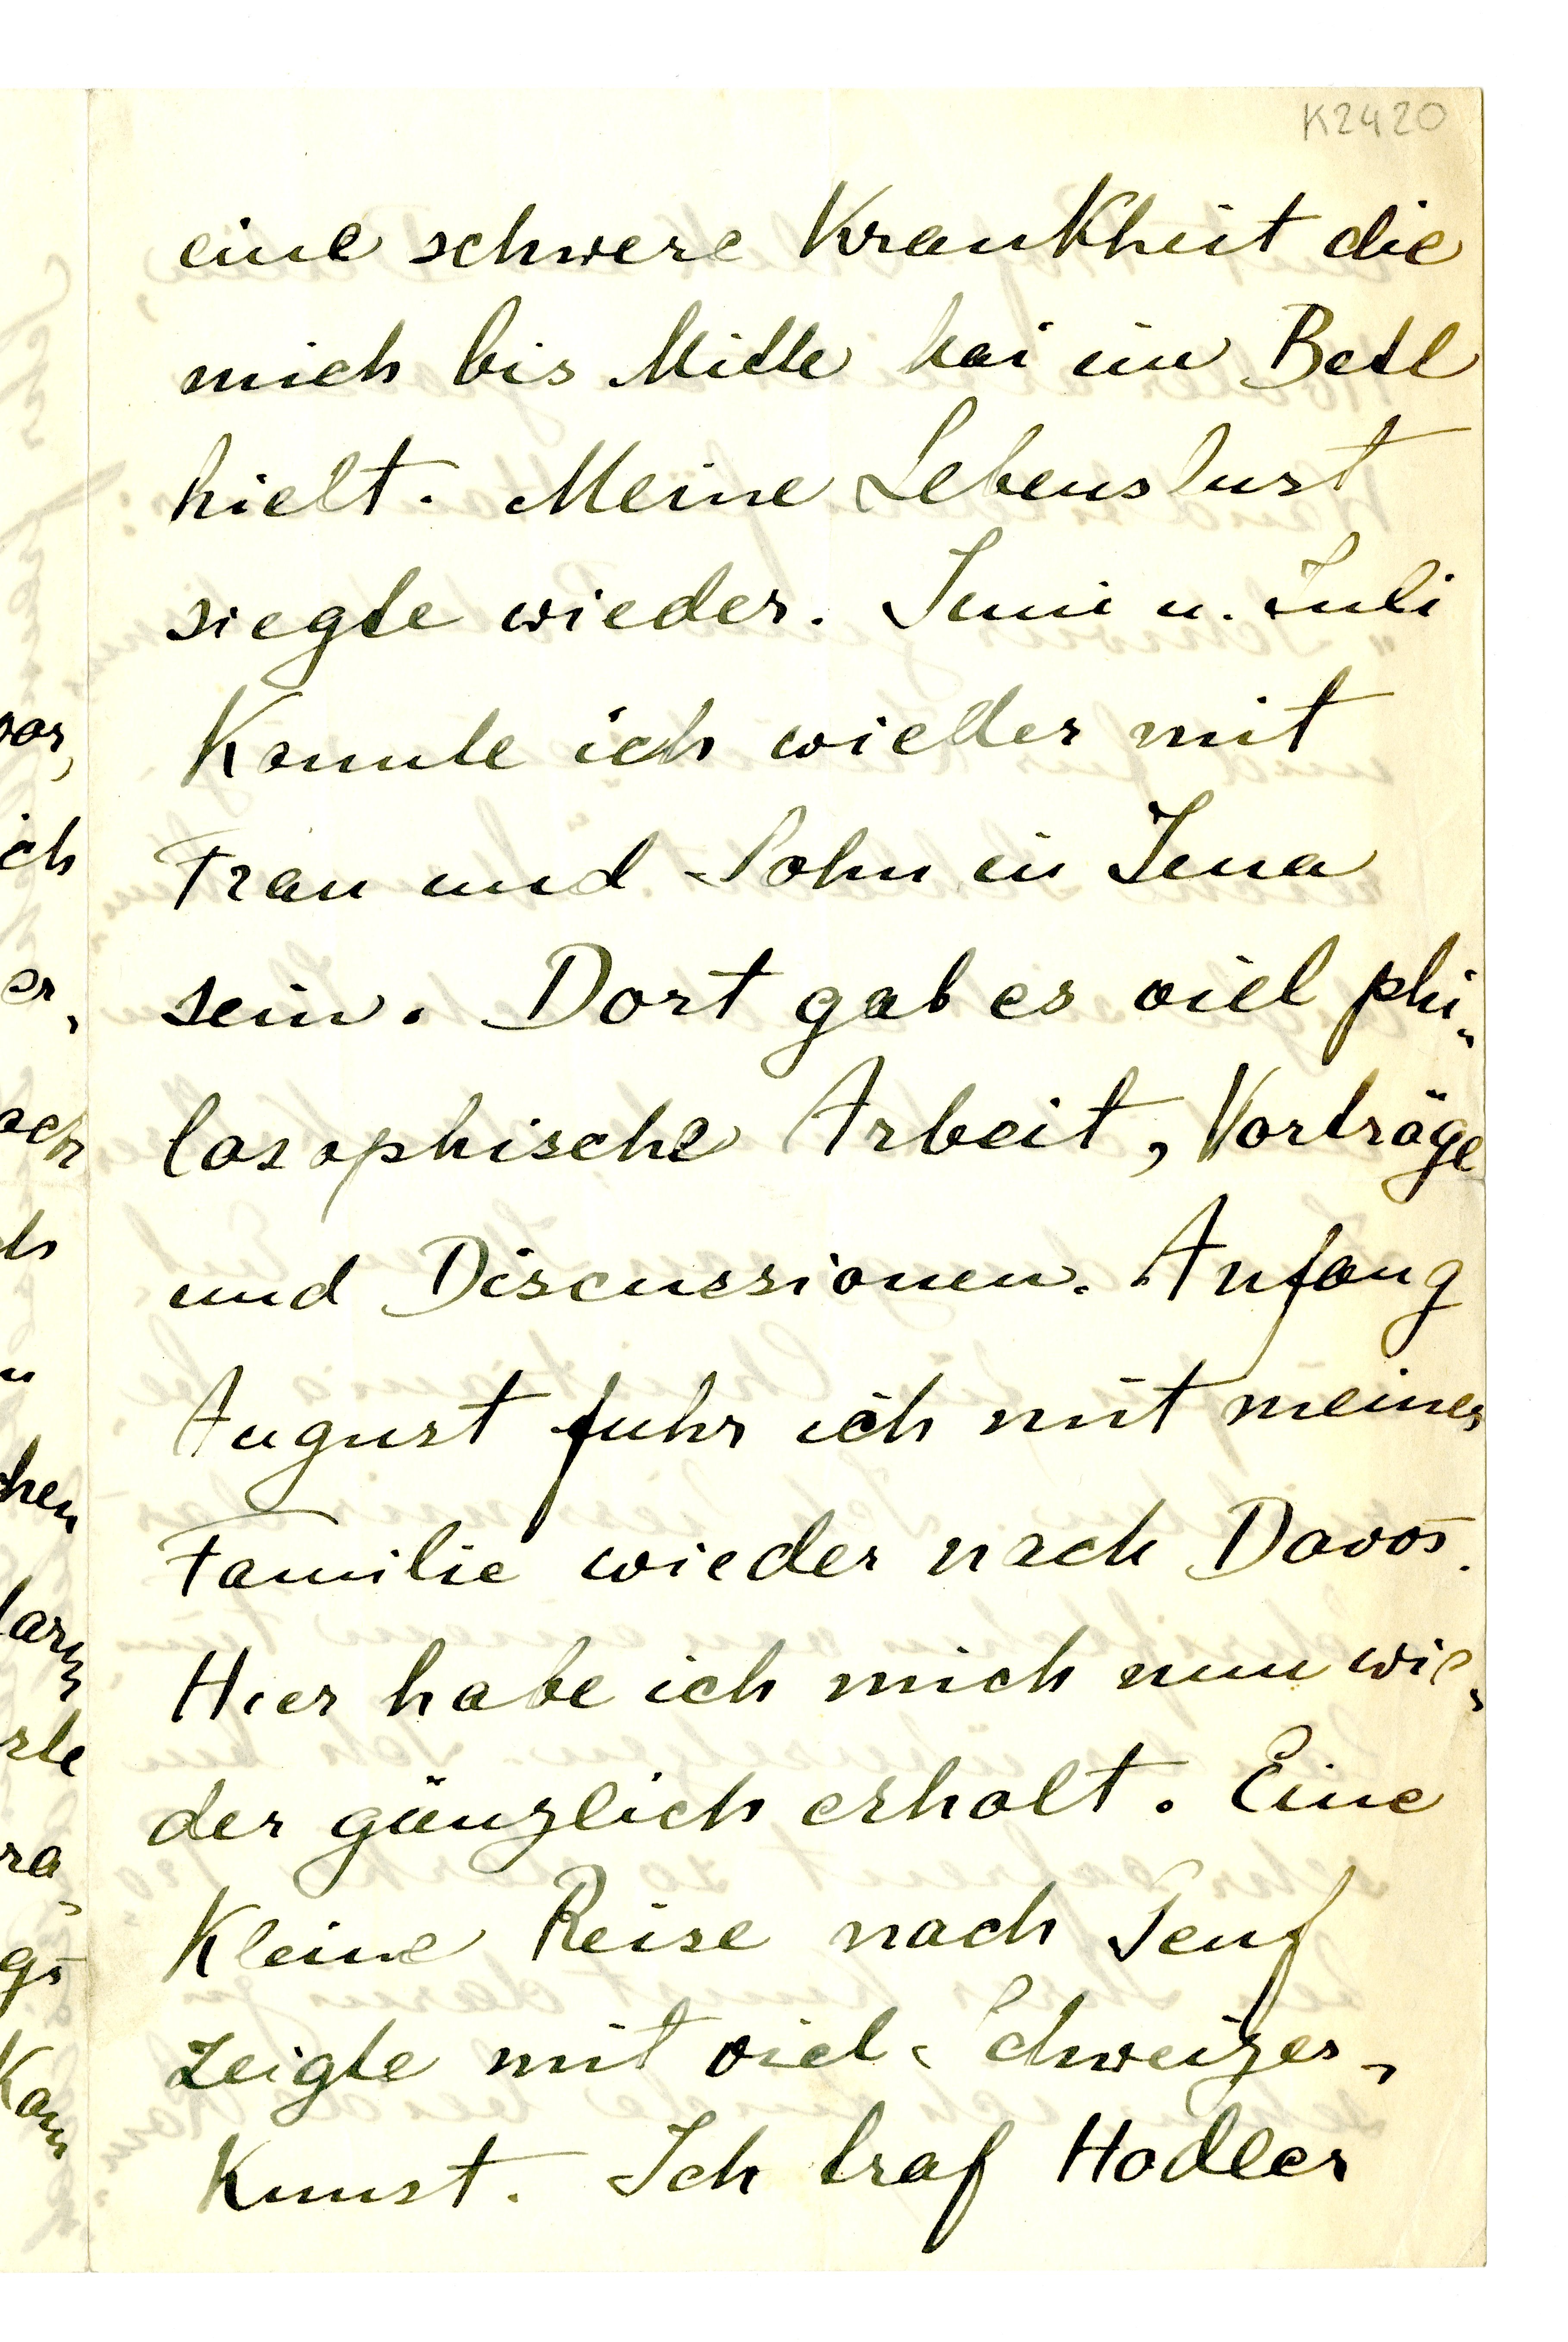 K2420
eine schwere Krankheit die
mich bis Mitte Mai im Bett
hielt. Meine Lebenslust
siegte wieder. Juni u. Juli
Konnte ich wieder mit
Frau und Sohn in Jena
sein. Dort gab es viel phi-
losophische Arbeit, Vorträge
und Discussionen. Anfang
August fuhr ich mit meiner
Familie wieder nach Davos.
Hier habe ich mich nun wie-
der gänzlich erholt. Eine
Kleine Reise nach Genf
zeigte mit viel Schweizer-
Kunst. Ich traf Hodler